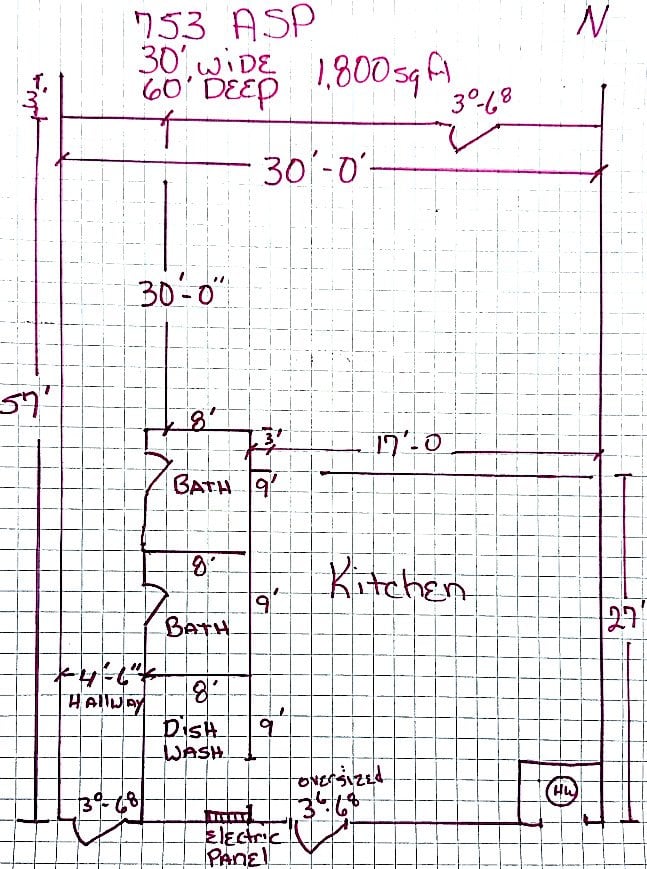 753 ASP
N
30' WIDE
60' DEEP
1,800 sq ft
3'
3⁰-6⁸
30'-0'
30'-0"
57'
8'
3'
17'-0
BATH
9'
8'
Kitchen
9'
27'
BATH
4'-6"
HAllWAY
8'
DISH
WASH
9'
oversized
3⁶-6⁸
HW
3⁰-6⁸
Electric
PANEL